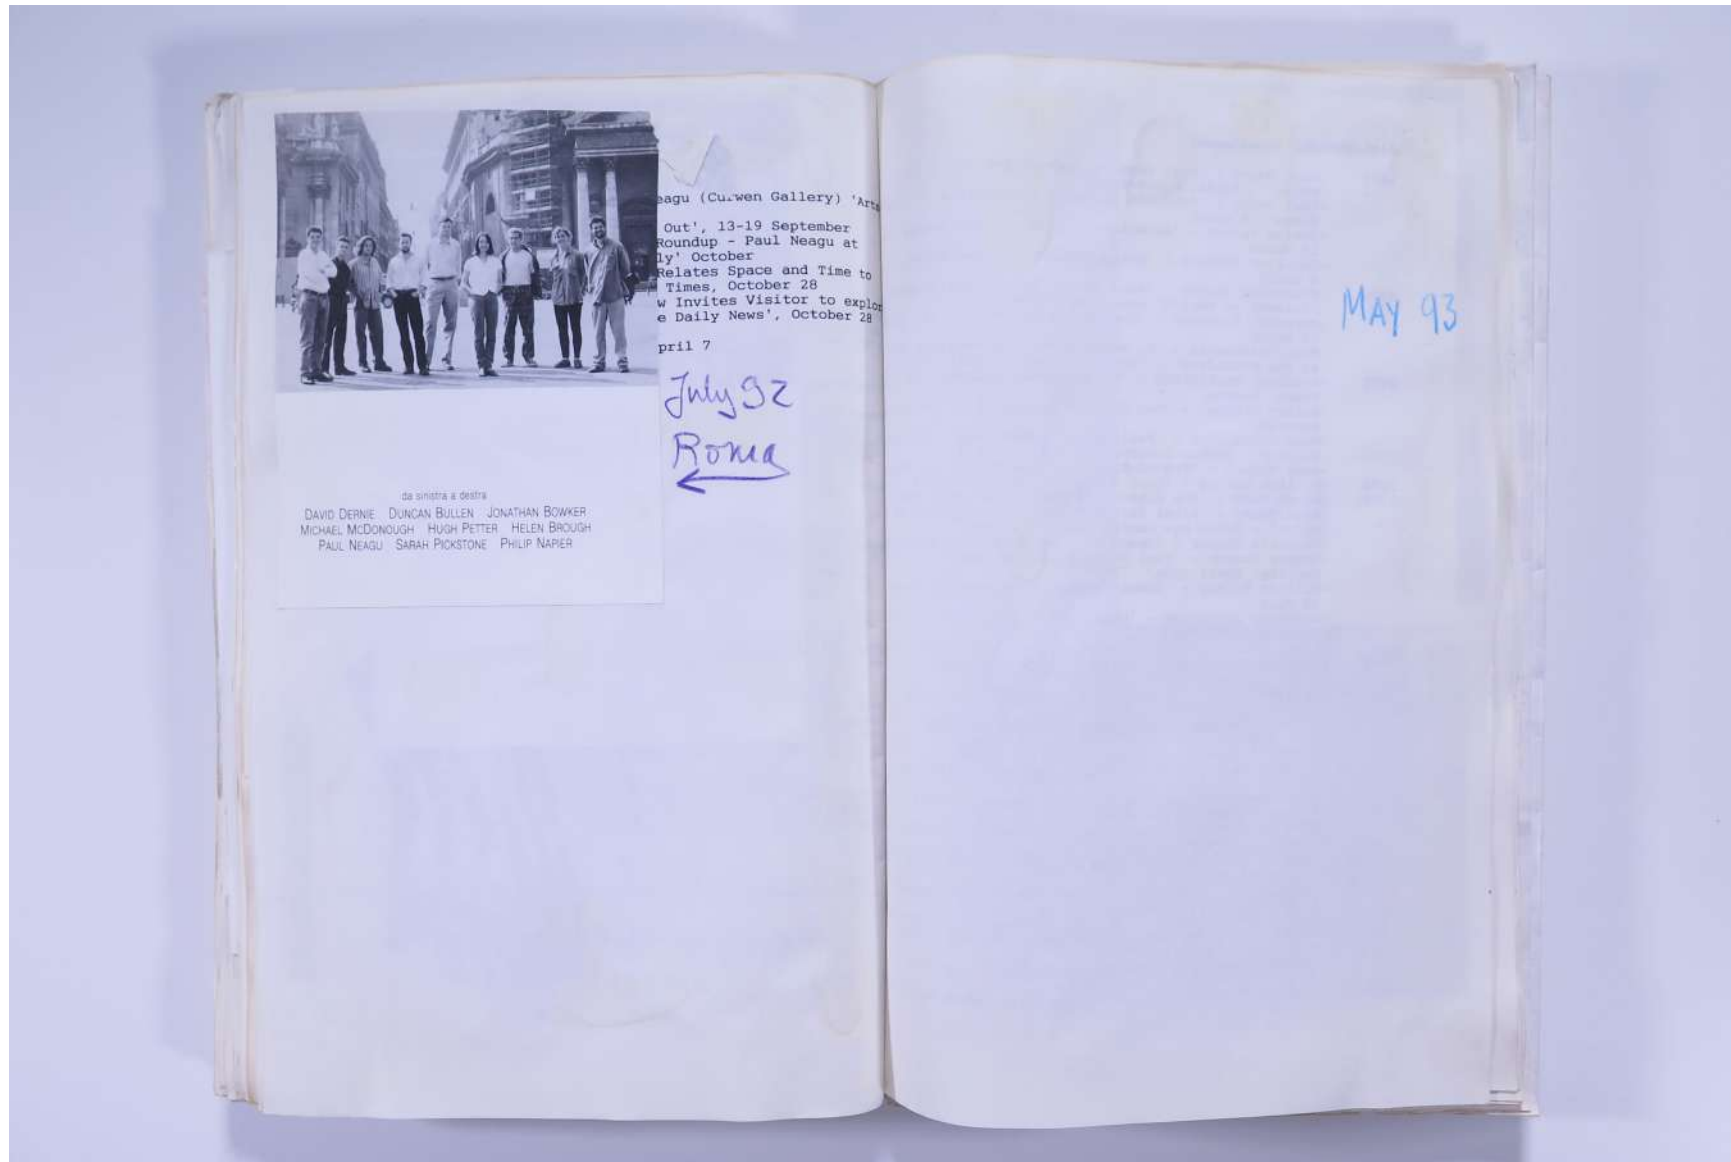 eagu (Curwen Gallery) 'Arts
Out', 13-19 September
Roundup - Paul Neagu at
ly' October
Relates Space and Time to
Times, October 28
w Invites Visitor to explor
e Daily News', October 28
pril 7
July 92
Roma
da sinistra a destra
DAVID DERNIE DUNCAN BULLEN JONATHAN BOWKER
MICHAEL MCDONOUGH HUGH PETTER HELEN BROUGH
PAUL NEAGU SARAH PICKSTONE PHILIP NAPIER
MAY 93